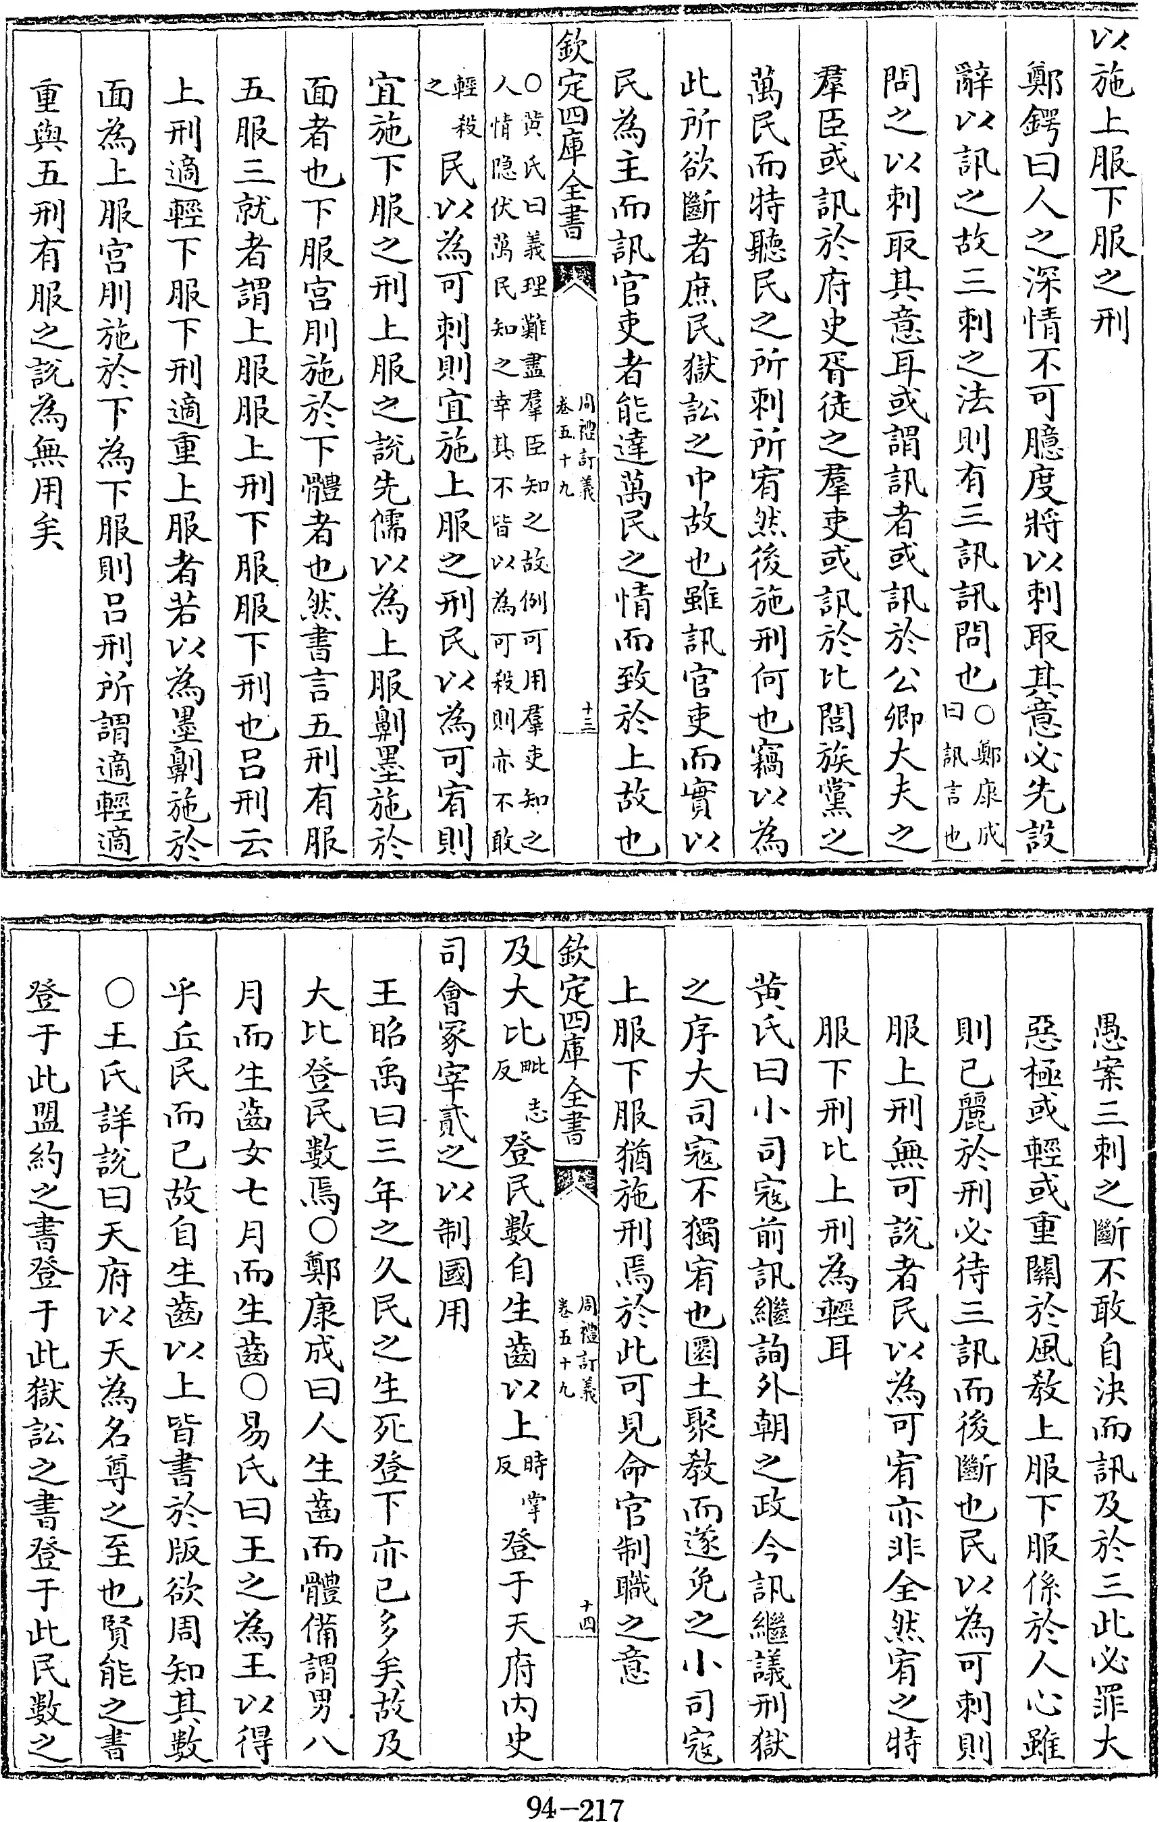 以施上服下服之刑
鄭鍔曰人之深情不可臆度將以刺取其意必先設
辭以訊之故三刺之法則有三訊訊問也○鄭康成曰訊言也
問之以刺取其意耳或謂訊者或訊於公卿大夫之
羣臣或訊於府史胥徒之羣吏或訊於比閭族黨之
萬民而特聽民之所刺所宥然後施刑何也竊以為
此所欲斷者庶民獄訟之中故也雖訊官吏而實以
民為主而訊官吏者能達萬民之情而致於上故也
欽定四庫全書 周禮訂義卷五十九 十三
○黄氏曰義理難盡羣臣知之故例可用羣吏知之人情隠伏萬民知之幸其不皆以為可殺則亦不敢
輕殺之民以為可刺則宜施上服之刑民以為可宥則
宜施下服之刑上服之說先儒以為上服劓墨施於
面者也下服宫刖施於下體者也然書言五刑有服
五服三就者謂上服服上刑下服服下刑也吕刑云
上刑適輕下服下刑適重上服者若以為墨劓施於
面為上服宫刖施於下為下服則吕刑所謂適輕適
重與五刑有服之說為無用矣
愚案三刺之斷不敢自决而訊及於三此必罪大
惡極或輕或重關於風教上服下服係於人心雖
則已麗於刑必待三訊而後斷也民以為可刺則
服上刑無可說者民以為可宥亦非全然宥之特
服下刑比上刑為輕耳
黄氏曰小司寇前訊繼詢外朝之政今訊繼議刑獄
之序大司寇不獨宥也圜土聚教而遂免之小司寇
上服下服猶施刑焉於此可見命官制職之意
欽定四庫全書 周禮訂義卷五十九 十四
及大比毗志反登民數自生齒以上時掌反登于天府内史
司會冢宰貳之以制國用
王昭禹曰三年之久民之生死登下亦已多矣故及
大比登民數焉○鄭康成曰人生齒而體備謂男八
月而生齒女七月而生齒○易氏曰王之為王以得
乎丘民而已故自生齒以上皆書於版欲周知其數
○王氏詳說曰天府以天為名尊之至也賢能之書
登于此盟約之書登于此獄訟之書登于此民數之
94-217